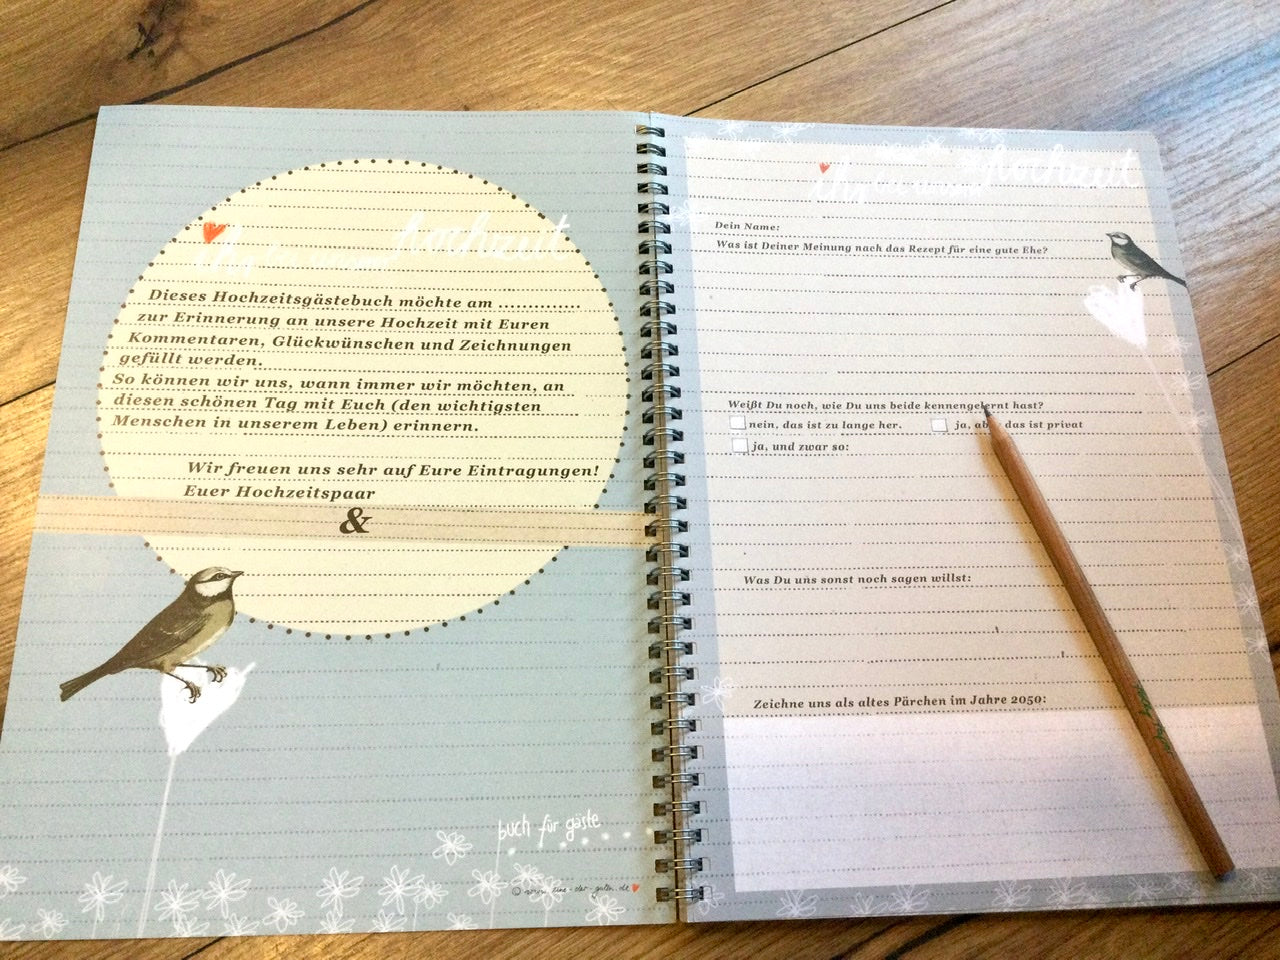 hochzeit
Dieses Hochzeitsgästebuch möchte am ..............
zur Erinnerung an unsere Hochzeit mit Euren
Kommentaren, Glückwünschen und Zeichnungen
gefüllt werden.
So können wir uns, wann immer wir möchten, an
diesen schönen Tag mit Euch (den wichtigsten
Menschen in unserem Leben) erinnern.
Wir freuen uns sehr auf Eure Eintragungen!
Euer Hochzeitspaar
&
buch für gäste
© www.eine-der-guten.de
hochzeit
Dein Name:
Was ist Deiner Meinung nach das Rezept für eine gute Ehe?
Weißt Du noch, wie Du uns beide kennengelernt hast?
nein, das ist zu lange her.
ja, aber das ist privat
ja, und zwar so:
Was Du uns sonst noch sagen willst:
Zeichne uns als altes Pärchen im Jahre 2050: